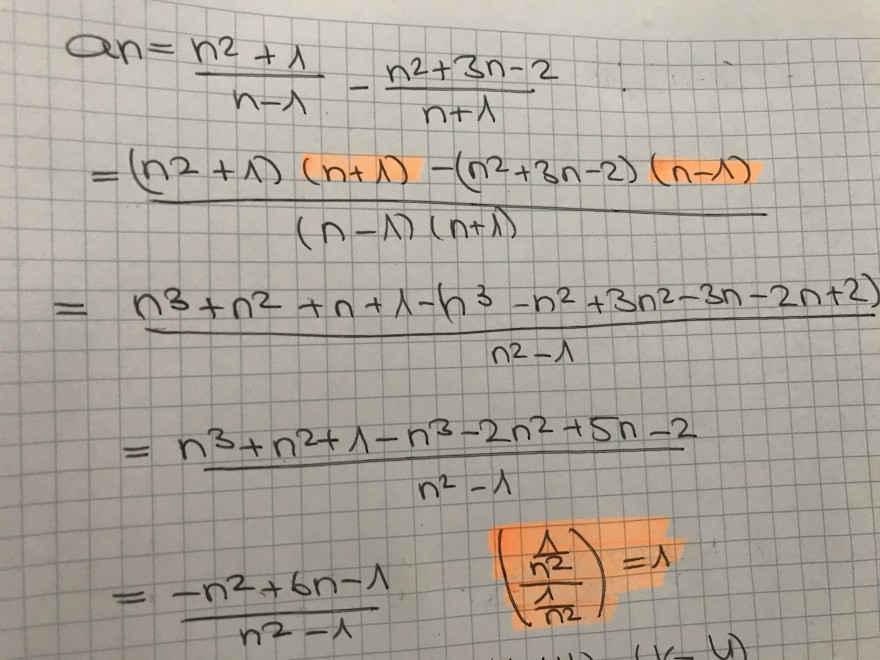 an = n2 + 1 / n-1 - n2+3n-2 / n+1
= (n2 + 1) (n+1) - (n2+3n-2) (n-1) / (n-1) (n+1)
= n3 + n2 + n + 1 - (n3 - n2 + 3n2 - 3n - 2n + 2) / n2 - 1
= n3 + n2 + 1 - n3 - 2n2 + 5n - 2 / n2 - 1
= -n2 + 6n - 1 / n2 - 1 (1/n2 / 1/n2) = 1